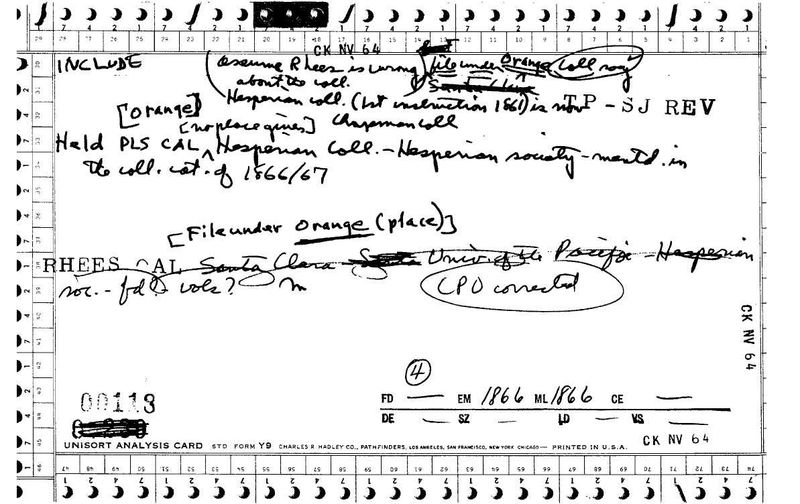 CK NV 64
INCLUDE
(assume Rhees is wrong about the coll.
file under Orange Coll say
Hesperian coll. (1st instruction 1861) is now
Chapman Coll
TP - SJ REV
[Orange]
[no place given]
Held PLS CAL Hesperian Coll. - Hesperian society - mentd. in
the coll. cat. of 1866/67
[File under Orange (place)]
RHEES CAL Santa Clara Univ of the Pacific - Hesperian
soc. - fd? - vols? m
CPO corrected
CK NV 64
4
00113
FD — EM 1866 ML 1866 CE —
DE — SZ — LD — VS —
UNISORT ANALYSIS CARD STD FORM Y9 CHARLES R HADLEY CO., PATHFINDERS, LOS ANGELES, SAN FRANCISCO, NEW YORK CHICAGO — PRINTED IN U.S.A.
CK NV 64